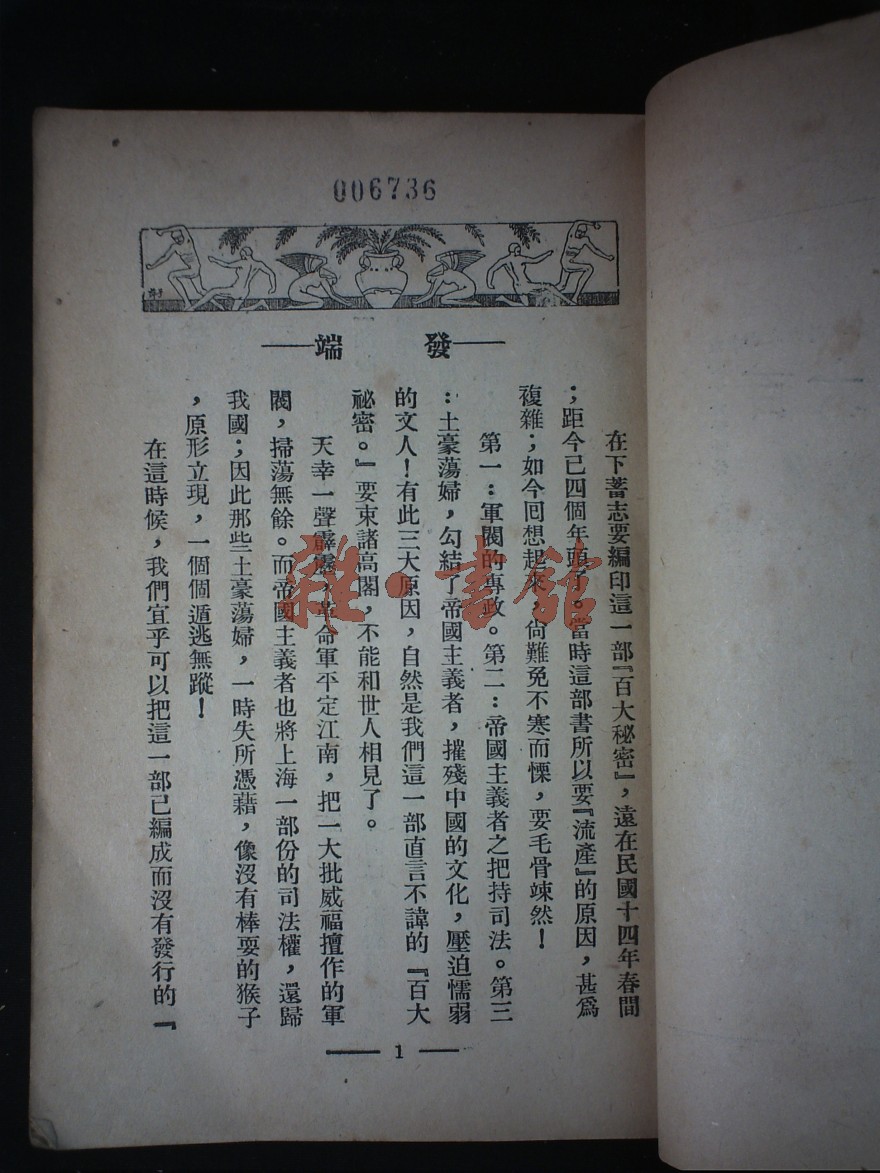 006736
發端
在下蓄志要編印這一部『百大秘密』，遠在民國十四年春間
；距今已四個年頭了。當時這部書所以要『流產』的原因，甚爲
複雜；如今回想起來，尙難免不寒而慄，要毛骨竦然！
第一：軍閥的專政。第二：帝國主義者之把持司法。第三
：土豪蕩婦，勾結了帝國主義者，摧殘中國的文化，壓迫懦弱
的文人！有此三大原因，自然是我們這一部直言不諱的『百大
祕密。』要束諸高閣，不能和世人相見了。
天幸一聲霹靂，革命軍平定江南，把一大批威福擅作的軍
閥，掃蕩無餘。而帝國主義者也將上海一部份的司法權，還歸
我國；因此那些土豪蕩婦，一時失所憑藉，像沒有棒耍的猴子
，原形立現，一個個遁逃無蹤！
在這時候，我們宜乎可以把這一部已編成而沒有發行的『
1
雜·書館